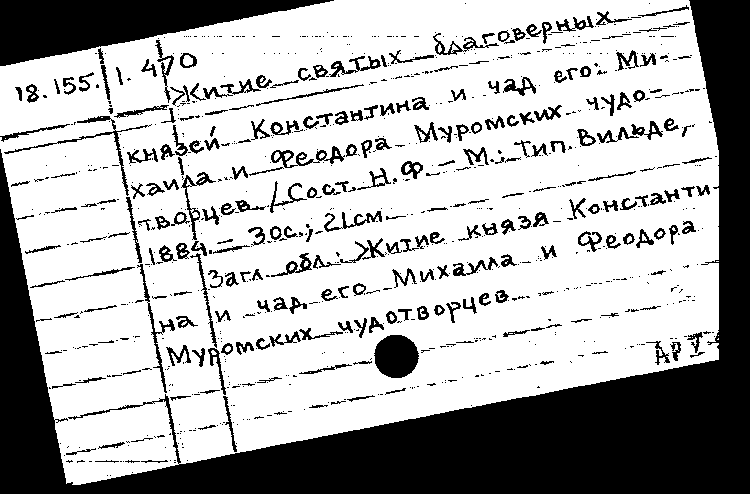 18.155.1.470
Житие святых благоверных
князей Константина и чад его: Ми-
хаила и Феодора Муромских чудо-
творцев. / Сост. Н.Ф. – М.: Тип. Вильде,
1884. – 30с.; 21см.
Загл. обл.: Житие князя Константи-
на и чад его Михаила и Феодора
Муромских чудотворцев